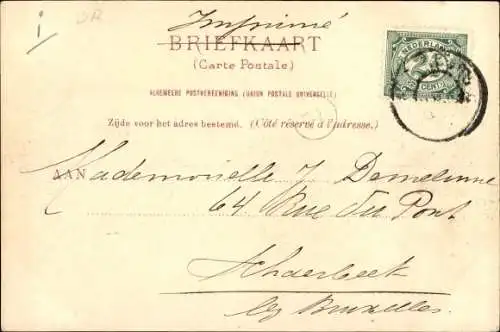 i
Imprimé
BRIEFKAART
(Carte Postale)
ALGEMEENE POSTVEREENIGING (UNION POSTALE UNIVERSELLE)
Zijde voor het adres bestemd. (Côté réservé à l'adresse.)
NEDERLAND
CENT
AAN Mademoiselle J Demeleune
64 Rue du Pont
Scharbeek
lez Bruxelles.